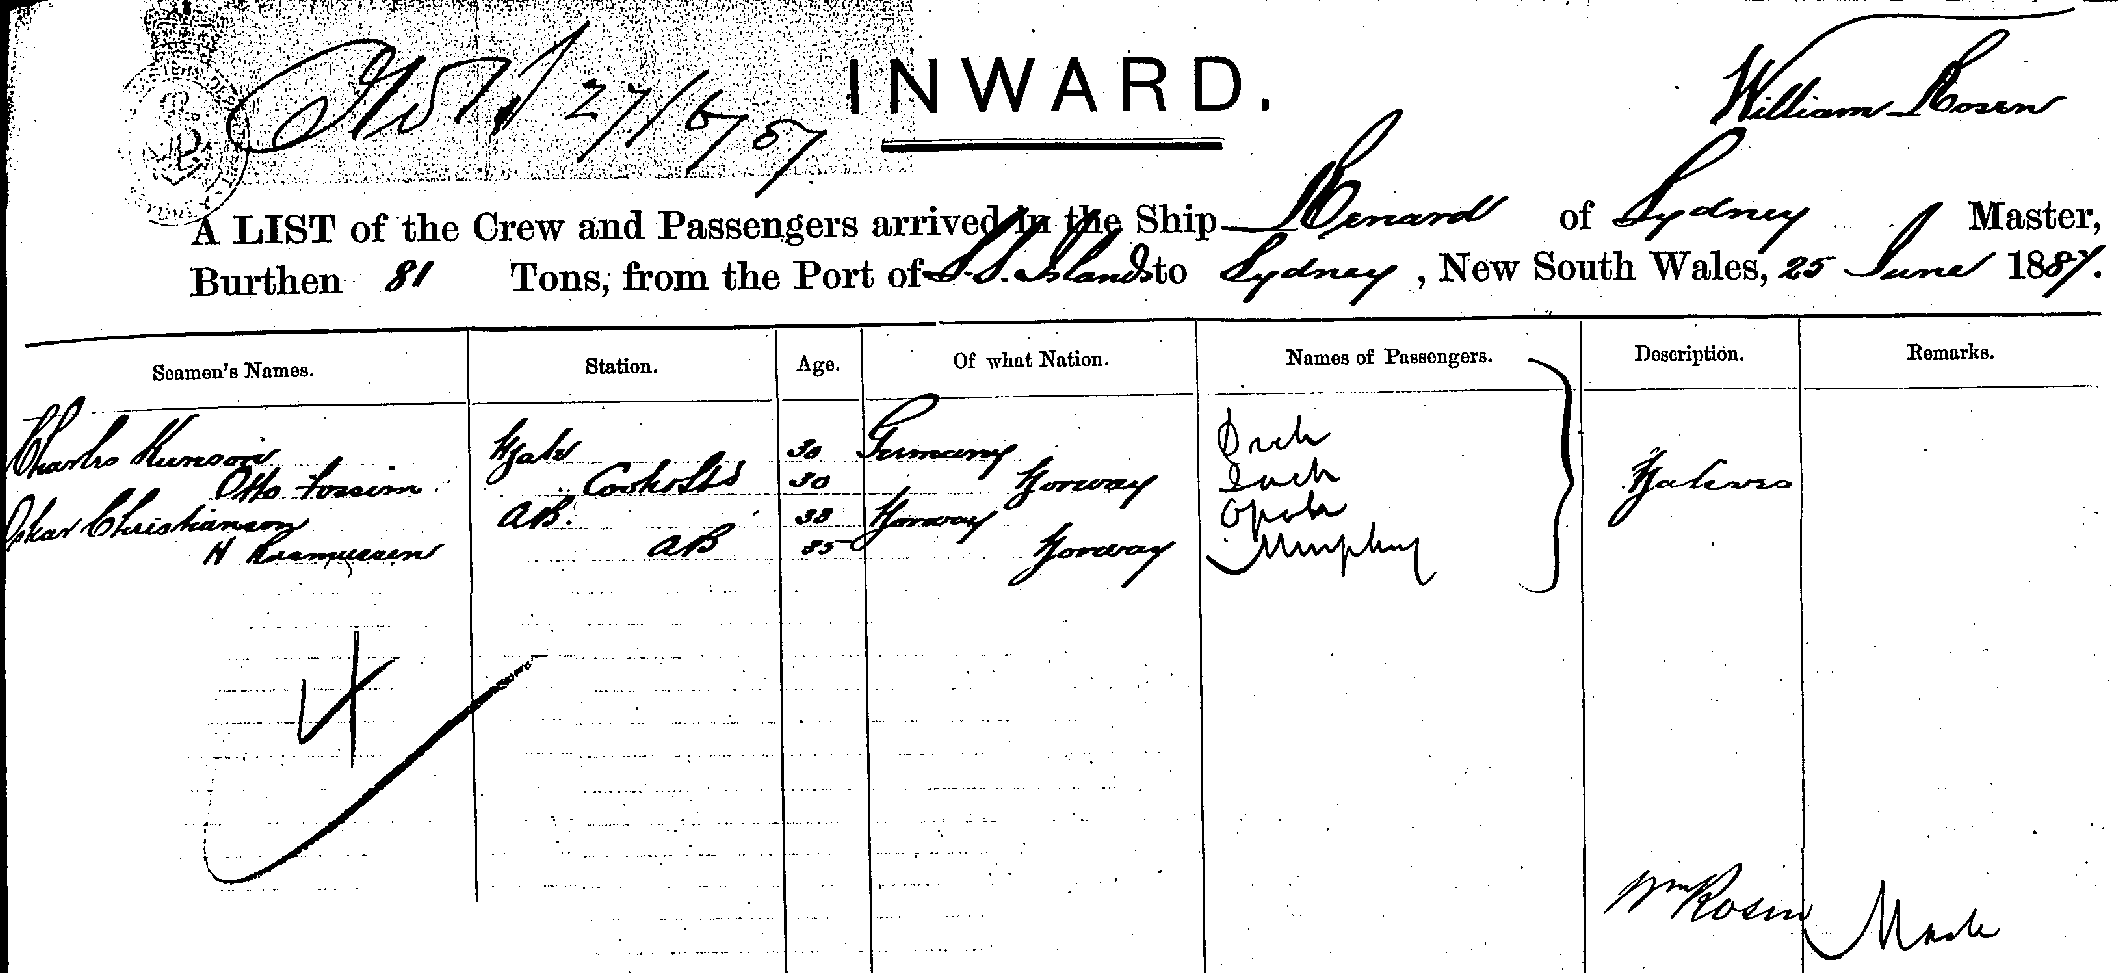 27/6/87
INWARD.
William Rosen
A LIST of the Crew and Passengers arrived in the Ship Renard of Sydney Master,
Burthen 81 Tons, from the Port of S. S. Islands to Sydney, New South Wales, 25 June 1887.
Seamen's Names. Station. Age. Of what Nation. Names of Passengers. Description. Remarks.
Charles Mate 30 Germany Dick
Otto Cook & Std 30 Norway Jack
Oskar Christianson AB. 33 Norway
H Rasmussen AB 35 Norway Murphy
Natives
4
Wm Rosen